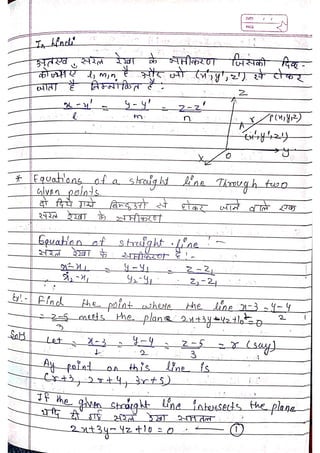 In hindi
सरल रेखा के समीकरण जिसकी दिक्-
l, m, n है और जो (x', y', z') से होकर
जाता है निम्नांकित है :-
Z
x-x'/l = y-y'/m = z-z'/n
A r P(x,y,z)
(x',y',z')
X O y
* Equations of a straight line Through two
Given points.
दो दिये गये बिन्दुओं से होकर जाने वाले एक
सरल रेखा के समीकरण
Equation of straight line :-
सरल रेखा के समीकरण है :-
x-x₁/x₂-x₁ = y-y₁/y₂-y₁ = z-z₁/z₂-z₁
Ex:- Find the point where the line x-3 = y-4/2
= z-5/3 meets the plane 2x+3y-4z+10=0
Solⁿ Let x-3/1 = y-4/2 = z-5/3 = r (say)
Any point on this line is
(r+3, 2r+4, 3r+5)
If the given straight line intersects the plane
यदि दी गई सरल रेखा समतल
2x+3y-4z+10=0 - ①